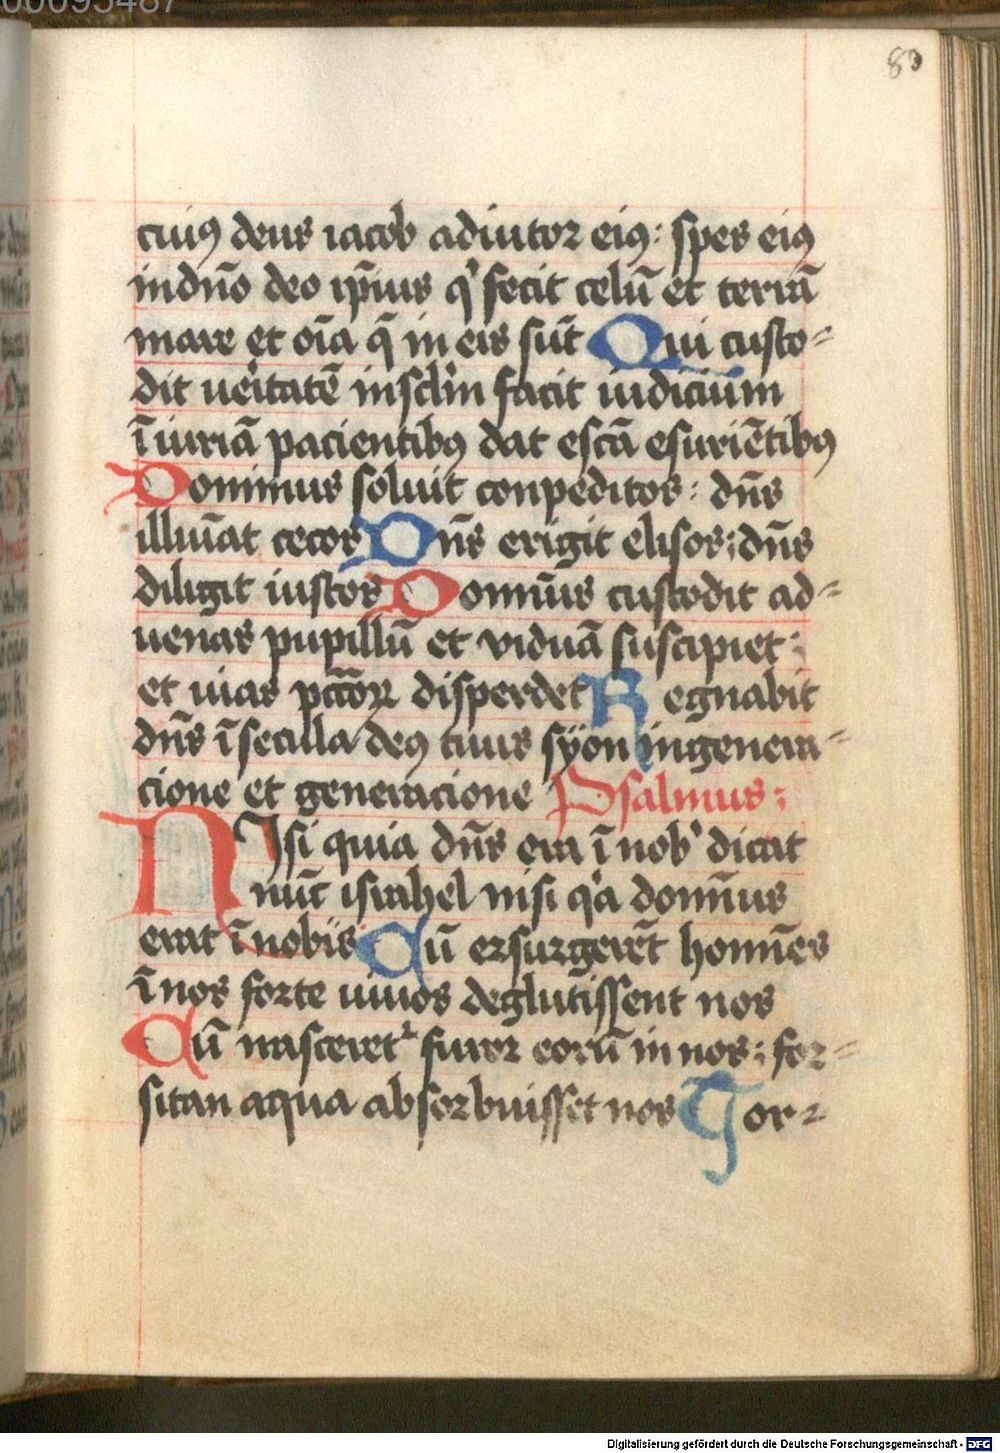 00095487
80
cuiꝰ deus iacob adiutor eiꝰ: spes eiꝰ
in dn̄o deo ip̄ius qͥ fecit celū et terrā
mare et oīa q̄ in eis sūt Qui custo⸗
dit ueͥitatē in sclm̄ facit iudicium
īiuriā pacientibꝰ dat escā esuriētibꝰ
Dominus soluit conpeditos: dn̄s
illuīat cecos Dn̄s erigit elisos: dn̄s
diligit iustos Domīus custodit ad⸗
uenas pupillū et viduā suscipiet:
et uias pctōꝝ disperdet Regnabit
dn̄s ī secula deꝰ tuus syon in genera⸗
cione et generacione Psalmus:
Nisi quia dn̄s erat ī nobͥ dicat
nūc israhel nisi qͥa domīus
erat ī nobis Cū exsurgerēt homīes
ī nos forte uiuos deglutissent nos
Cū irasceret᷑ furor eorū in nos: for⸗
sitan aqua absorbuisset nos Tor⸗
Digitalisierung gefördert durch die Deutsche Forschungsgemeinschaft - DFG